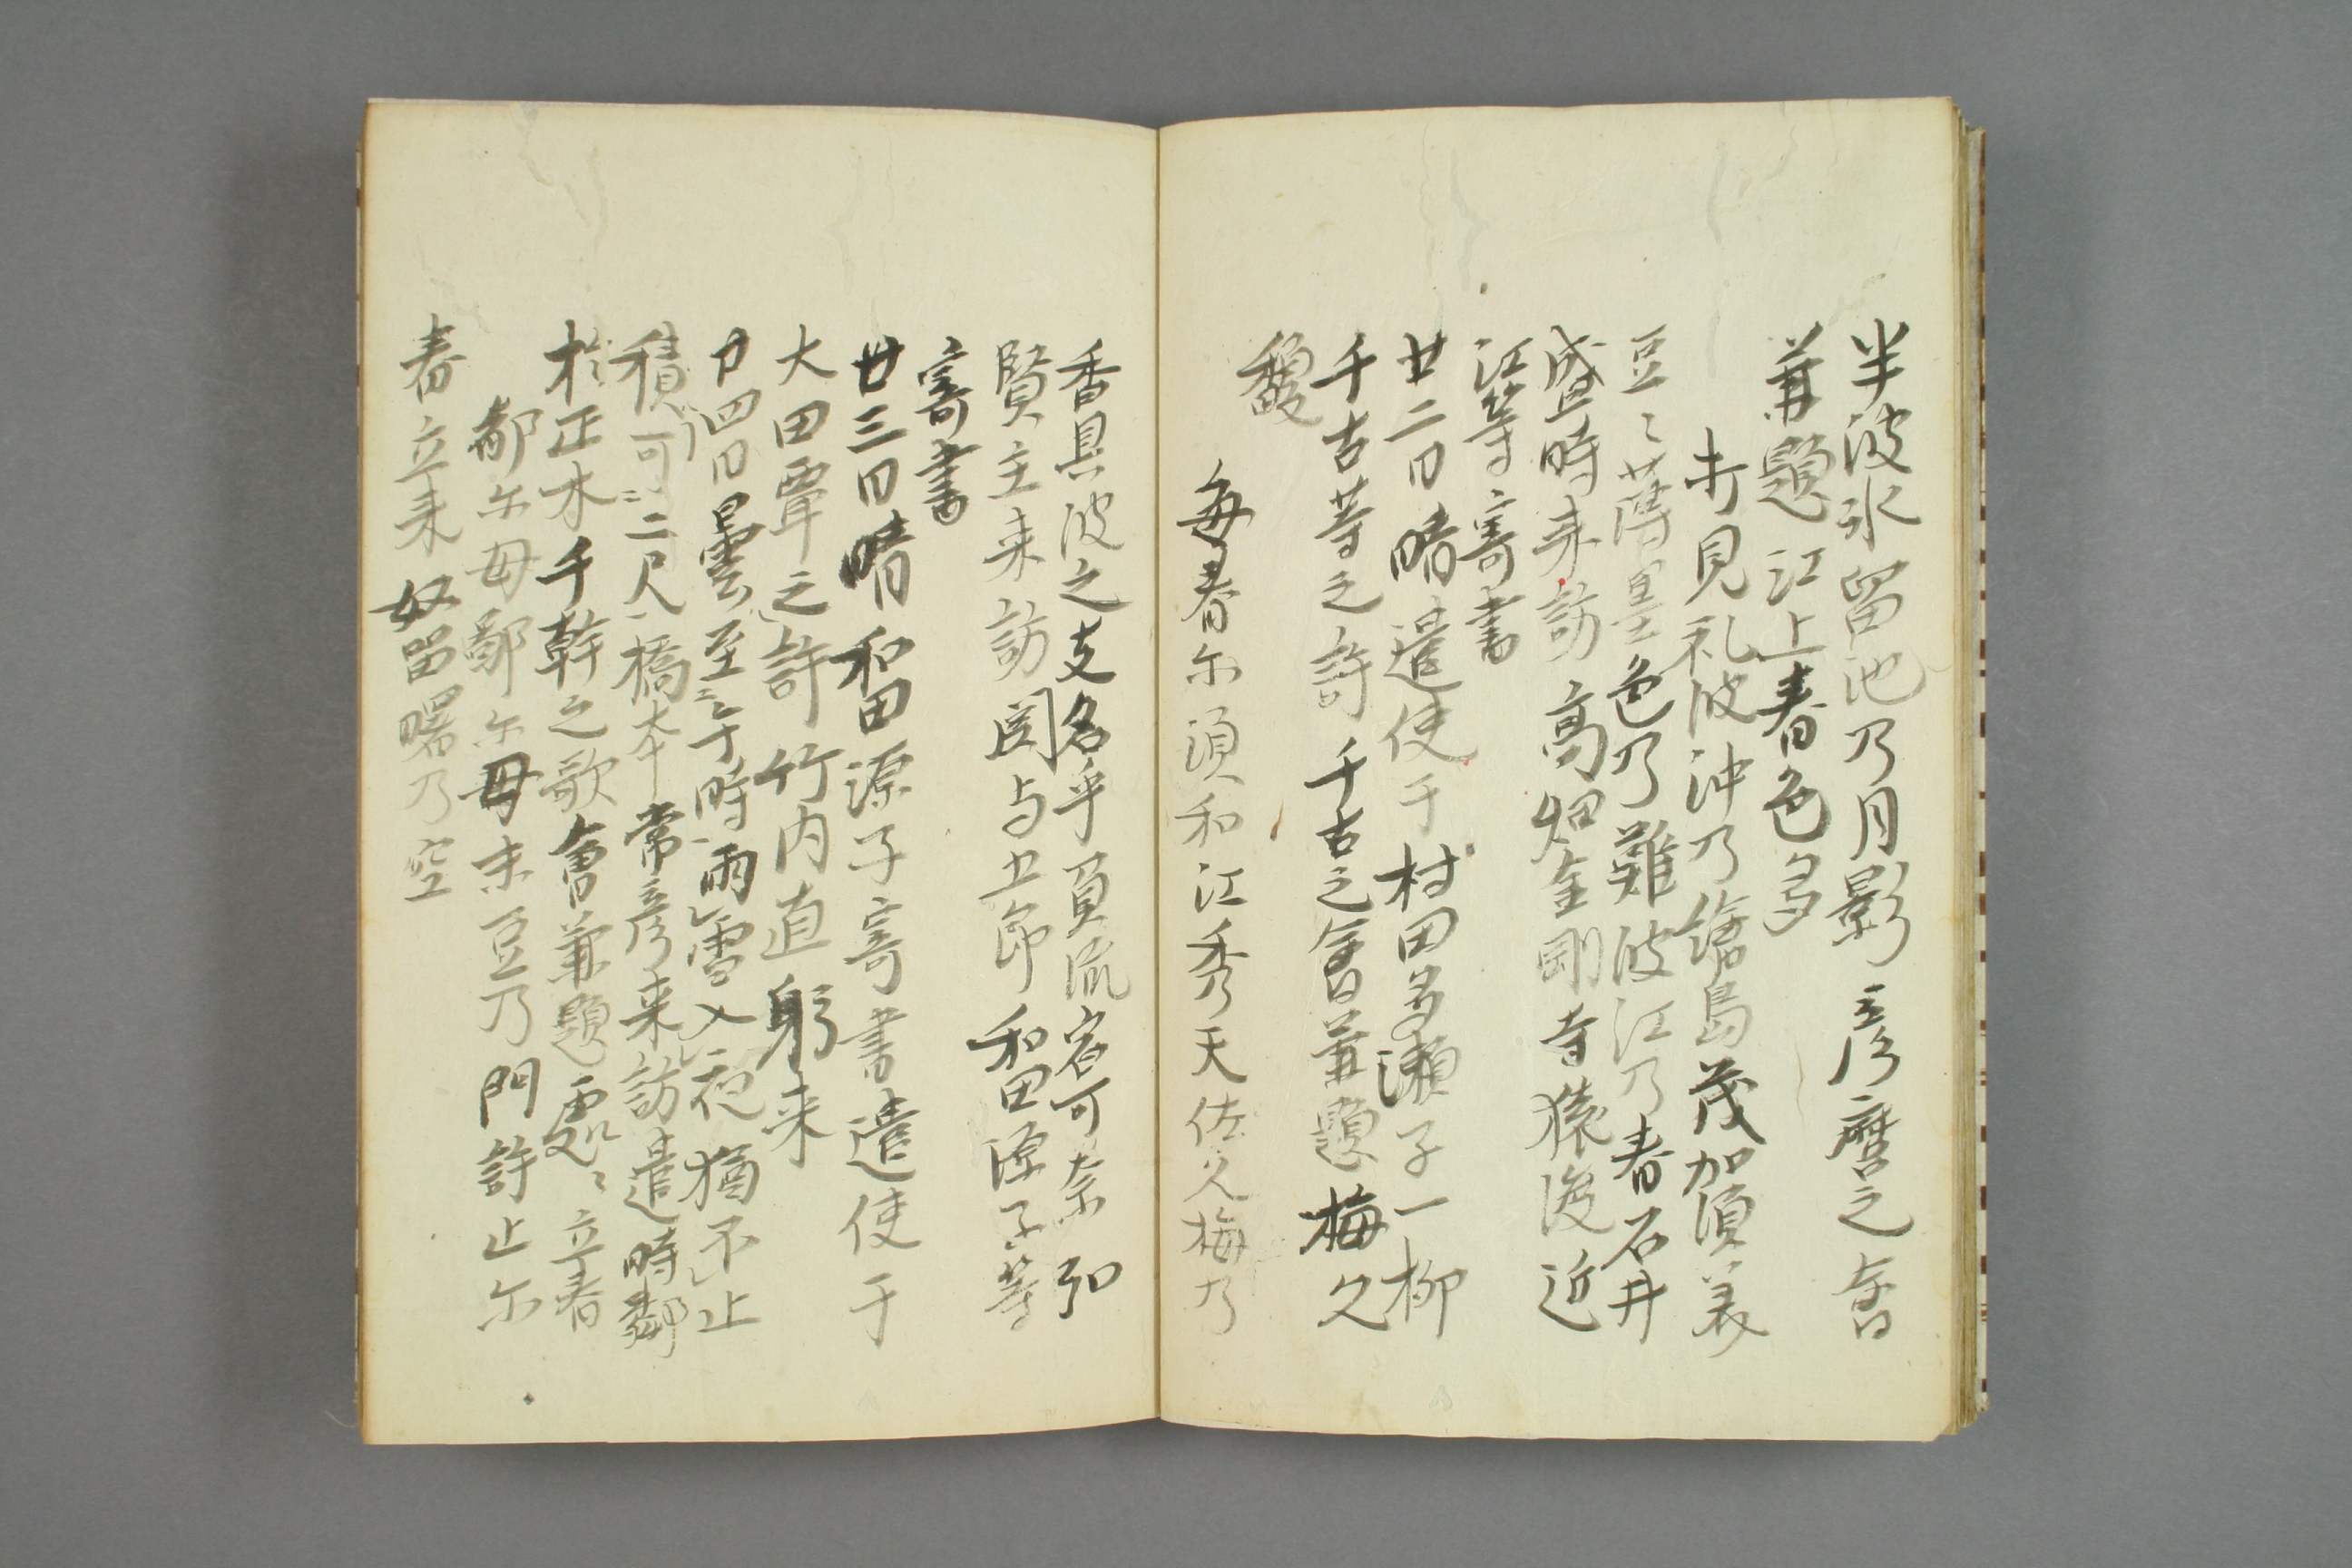 半波氷留池乃月影 彦麿之會
兼題 江上春色多
打見礼波沖乃繪島茂加須美
豆々薄墨色乃難波江乃春 石井
盛時来訪 高畑金剛寺猿渡近
江等寄書
廿二日晴遣使于村田多瀬子一柳
千古等之許 千古之會兼題 梅久
馥
毎春尓須和江秀天佐久梅乃
香具波之支名乎負流宿可奈 弘
賢主来訪 岡与五郎 和田源子等
寄書
廿三日晴 和田源子寄書遣使于
大田覃之許 竹内直躬来
廿四日曇至于時雨雪入夜猶不止
積可二尺橋本常彦来訪遣時鄰
於正木千幹之歌會兼題處々立春
都尓母鄙尓母未豆乃門許止尓
春立来奴留曙乃空